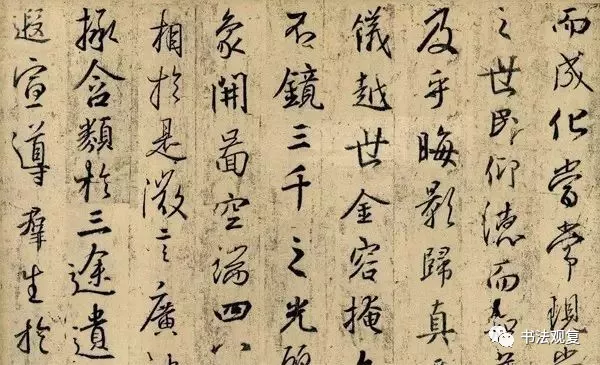 而成化當常現
之世民仰德而
及乎晦影歸真
儀越世金容掩
不鏡三千之光
象開啚空端四八
相於是微言廣
拯含類於三途遺
遐宣導羣生於
书法观复